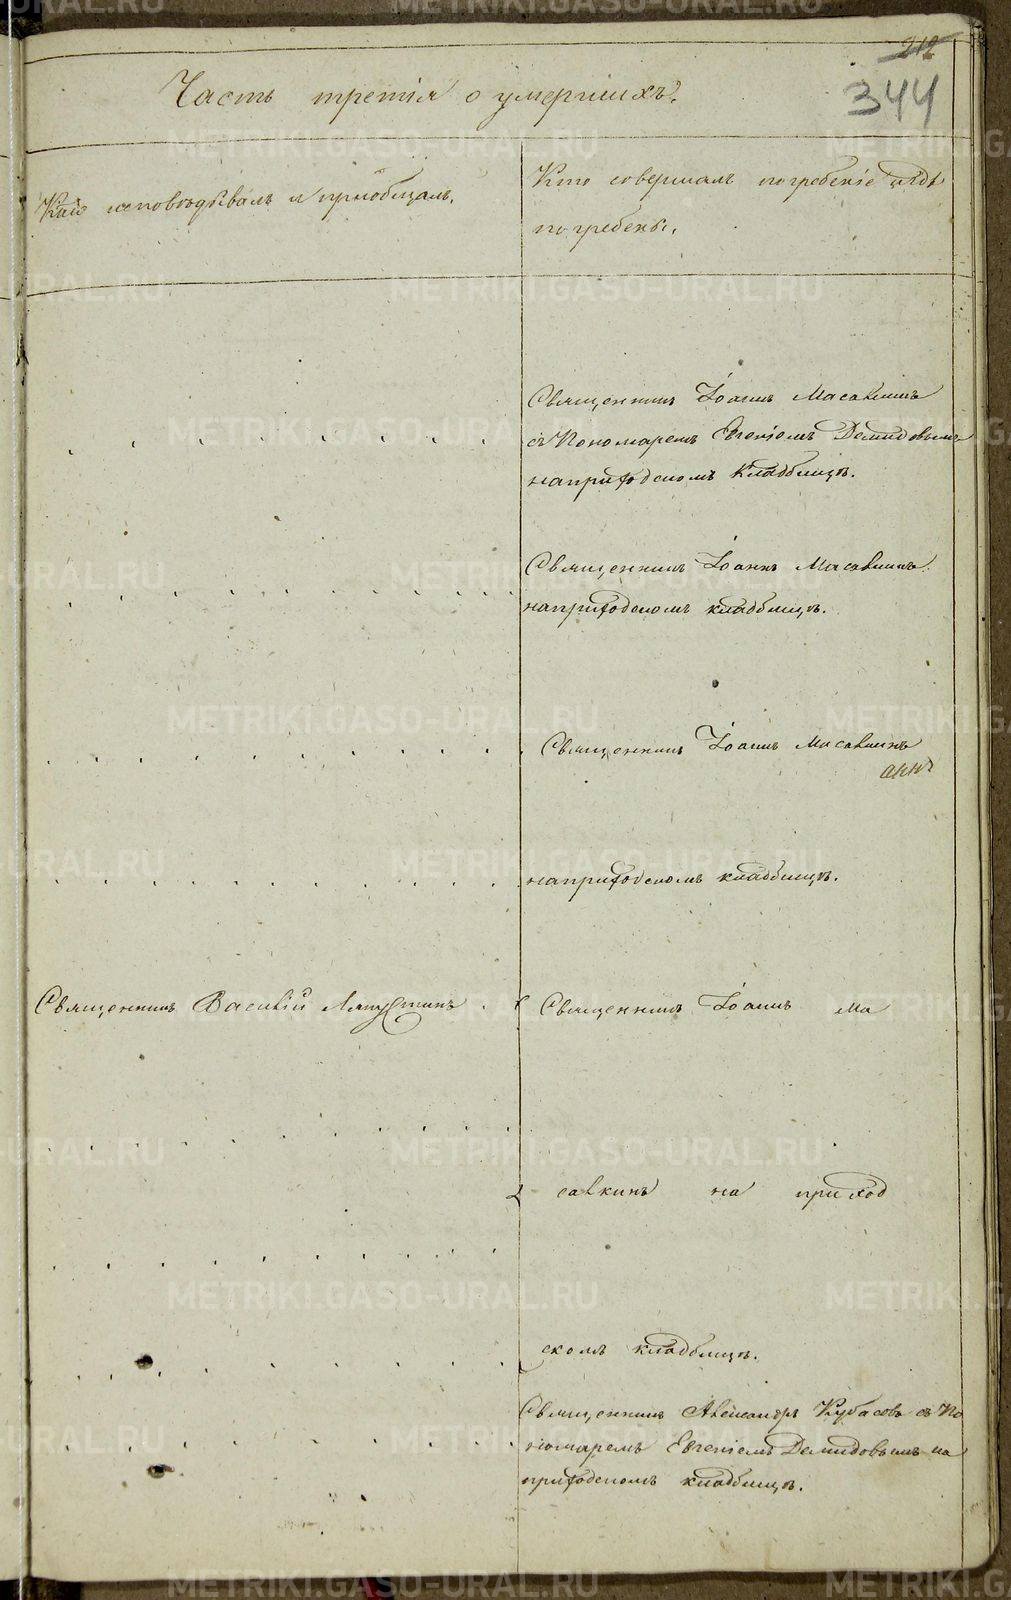 212
344
Часть третія о умершихъ.
Кто исповѣдывалъ и пріобщалъ.
Кто совершалъ погребеніе и гдѣ
погребены.
Священникъ Іоаннъ Масавкинъ
съ Пономаремъ Евгеніемъ Демидовымъ
на приходскомъ кладбищѣ.
Священникъ Іоаннъ Масавкинъ
на приходскомъ кладбищѣ.
Священникъ Іоаннъ Масавкинъ
на приходскомъ кладбищѣ.
Священникъ Василій
Священникъ Іоаннъ Ма
савкинъ на приход
скомъ кладбищѣ.
Священникъ Александръ Кубасовъ съ По
номаремъ Евгеніемъ Демидовымъ на
приходскомъ кладбищѣ.
METRIKI.GASO-URAL.RU